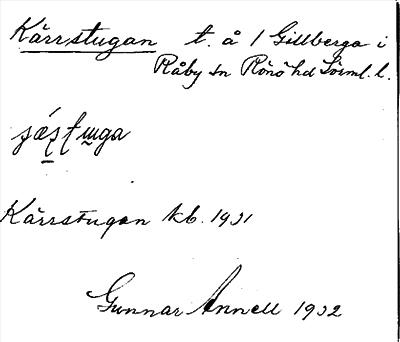 Kärrstugan t. å 1 Gillberga i
Råby sn Rönö hd Sörml. l.
Kärrstugan kb. 1931
Gunnar Annell 1932